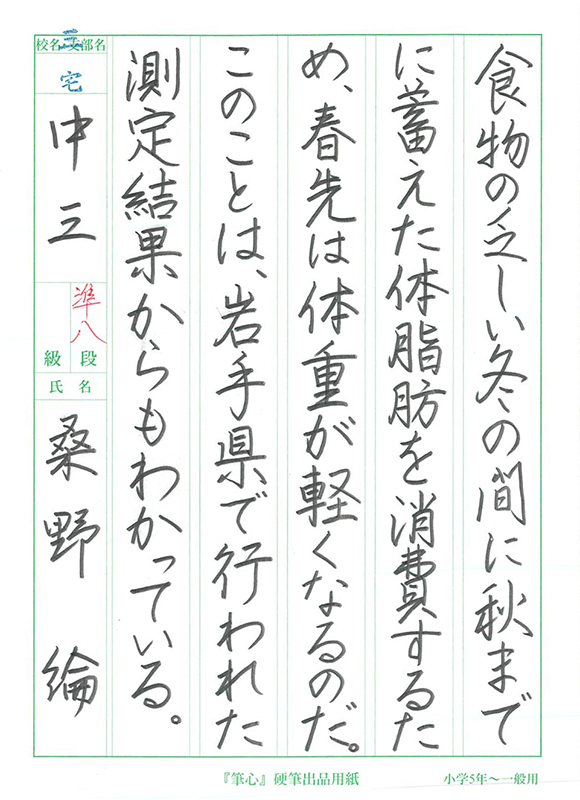 食物の乏しい冬の間に秋まで
に蓄えた体脂肪を消費するた
め、春先は体重が軽くなるのだ。
このことは、岩手県で行われた
測定結果からもわかっている。
校名・支部名
三宅
中三
準八
級 段
氏 名
桑野 綸
『筆心』硬筆出品用紙
小学5年～一般用